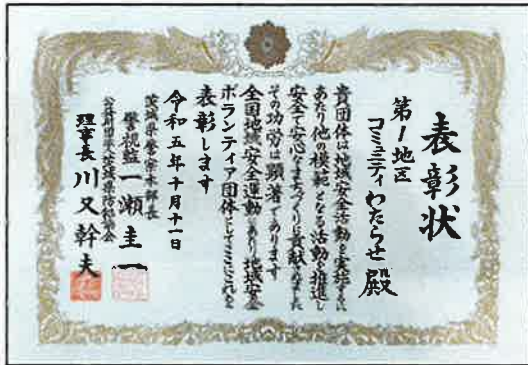 表彰状
第1地区
コミュニティわたらせ殿
貴団体は地域安全活動を実施するに
あたり他の模範となる活動を推進し
安全で安心なまちづくりに貢献されました
その功労は顕著であります
全国地域安全運動にあたり地域安全
ボランティア団体としてここにこれを
表彰します
令和五年十月十一日
茨城県警察本部長
警視監一瀬圭一
公益財団法人茨城県防犯協会
理事長川又幹夫